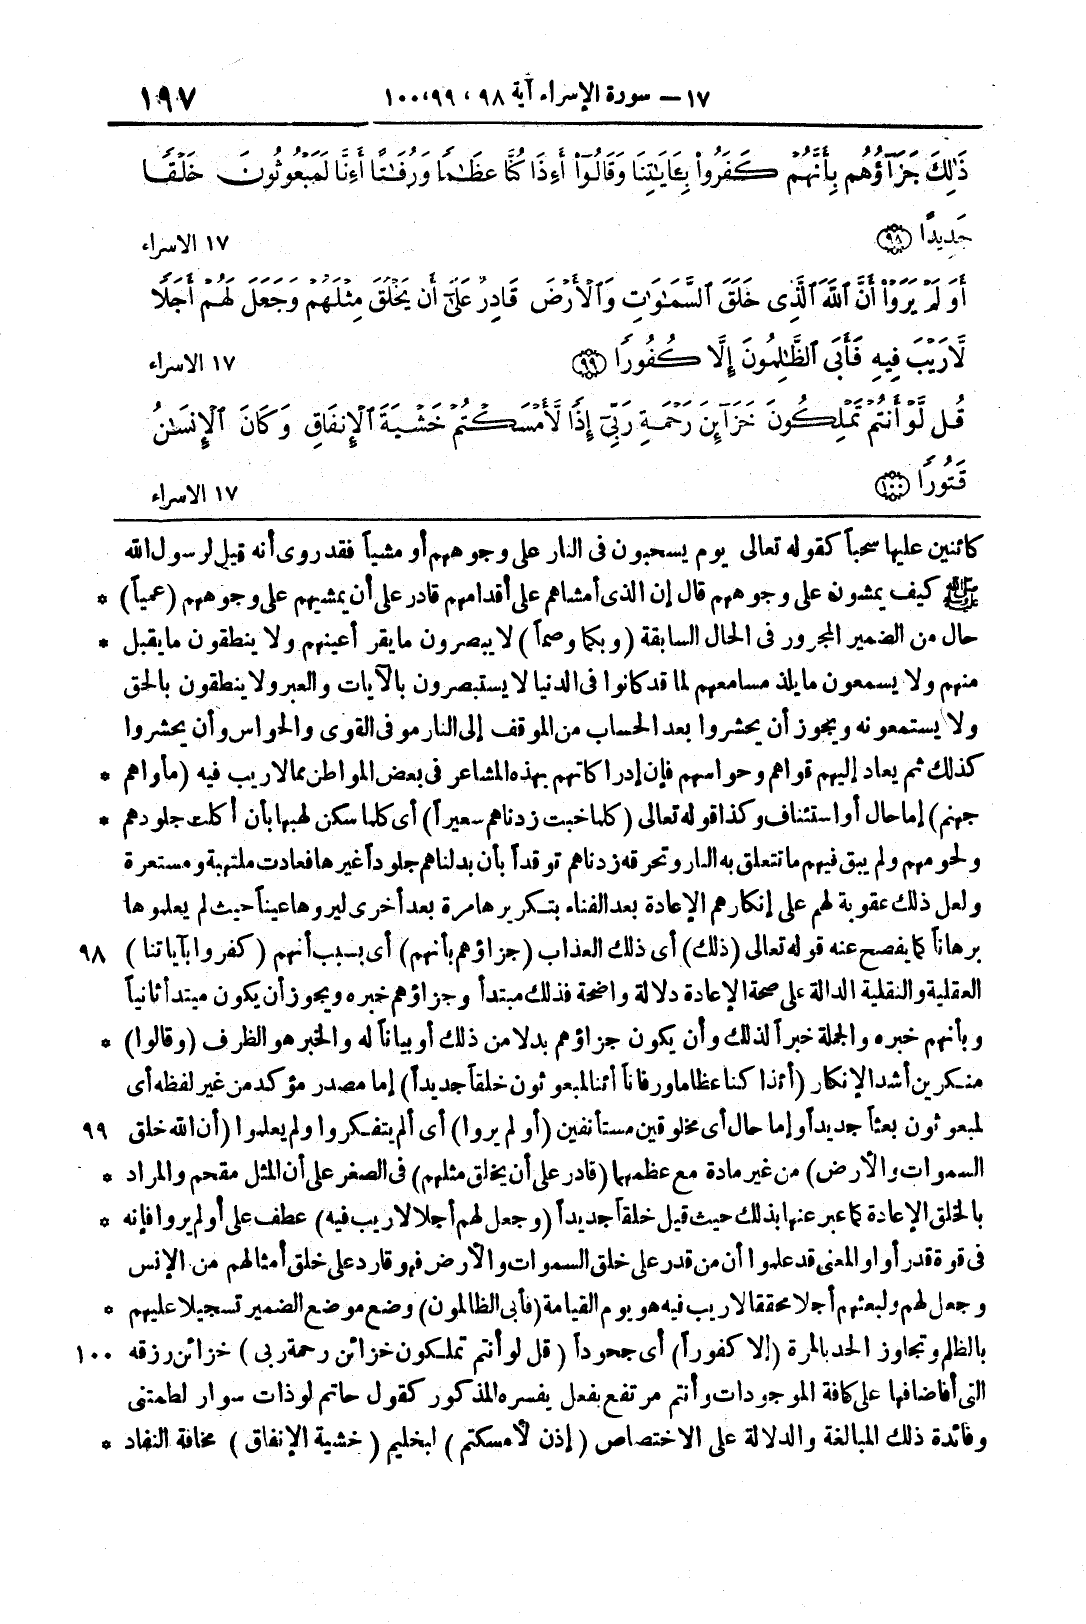 ١٧ – سورة الإسراء آية ٩٨، ٩٩، ١٠٠ ١٩٧
ذَٰلِكَ جَزَآؤُهُم بِأَنَّهُمْ كَفَرُواْ بِـَٔايَـٰتِنَا وَقَالُوٓاْ أَءِذَا كُنَّا عِظَـٰمًا وَرُفَـٰتًا أَءِنَّا لَمَبْعُوثُونَ خَلْقًا
جَدِيدًا ﴿٩٨﴾ ١٧ الاسراء
أَوَ لَمْ يَرَوْاْ أَنَّ ٱللَّهَ ٱلَّذِى خَلَقَ ٱلسَّمَـٰوَٰتِ وَٱلْأَرْضَ قَادِرٌ عَلَىٰٓ أَن يَخْلُقَ مِثْلَهُمْ وَجَعَلَ لَهُمْ أَجَلًا
لَّارَيْبَ فِيهِ فَأَبَى ٱلظَّـٰلِمُونَ إِلَّا كُفُورًا ﴿٩٩﴾ ١٧ الاسراء
قُل لَّوْ أَنتُمْ تَمْلِكُونَ خَزَآئِنَ رَحْمَةِ رَبِّىٓ إِذًا لَّأَمْسَكْتُمْ خَشْيَةَ ٱلْإِنفَاقِ وَكَانَ ٱلْإِنسَـٰنُ
قَتُورًا ﴿١٠٠﴾ ١٧ الاسراء
كائنين عليها سحباً كقوله تعالى يوم يسحبون فى النار على وجوههم أو مشياً فقد روى أنه قيل لرسول الله
ﷺ كيف يمشون على وجوههم قال إن الذى أمشاهم على أقدامهم قادر على أن يمشيهم على وجوههم (عمياً) *
حال من الضمير المجرور فى الحال السابقة (وبكما وصماً) لا يبصرون ما يقر أعينهم ولا ينطقون ما يقبل *
منهم ولا يسمعون ما يلذ مسامعهم لما قد كانوا فى الدنيا لا يستبصرون بالآيات والعبر ولا ينطقون بالحق
ولا يستمعونه ويجوز أن يحشروا بعد الحساب من الموقف إلى النار موفى القوى والحواس وأن يحشروا
كذلك ثم يعاد إليهم قواهم وحواسهم فإن إدراكاتهم بهذه المشاعر فى بعض المواطن مما لاريب فيه (مأواهم *
جهنم) إما حال أو استئناف وكذا قوله تعالى (كلما خبت زدناهم سعيراً) أى كلما سكن لهبها بأن أكلت جلودهم *
ولحومهم ولم يبق فيهم ما تتعلق به النار وتحرقه زدناهم توقداً بأن بدلناهم جلوداً غيرها فعادت ملتهبة ومستعرة
ولعل ذلك عقوبة لهم على إنكارهم الإعادة بعد الفناء بتكريرها مرة بعد أخرى ليروها عيناً حيث لم يعلموها
برهاناً كما يفصح عنه قوله تعالى (ذلك) أى ذلك العذاب (جزاؤهم بأنهم) أى بسبب أنهم (كفروا بآياتنا) ٩٨
العقلية والنقلية الدالة على صحة الإعادة دلالة واضحة فذلك مبتدأ وجزاؤهم خبره ويجوز أن يكون مبتدأ ثانياً
وبأنهم خبره والجملة خبراً لذلك وأن يكون جزاؤهم بدلا من ذلك أو بياناً له والخبر هو الظرف (وقالوا) *
منكرين أشد الإنكار (أئذا كنا عظاما ورفاتاً أئنا لمبعوثون خلقاً جديداً) إما مصدر مؤكد من غير لفظه أى
لمبعوثون بعثاً جديداً وإما حال أى مخلوقين مستأنفين (أو لم يروا) أى ألم يتفكروا ولم يعلموا (أن الله خلق ٩٩
السموات والأرض) من غير مادة مع عظمها (قادر على أن يخلق مثلهم) فى الصغر على أن المثل مقحم والمراد *
بالخلق الإعادة كما عبر عنها بذلك حيث قيل خلقاً جديداً (وجعل لهم أجلا لاريب فيه) عطف على أو لم يروا فإنه *
فى قوة قد رأوا والمعنى قد علموا أن من قدر على خلق السموات والأرض فهو قادر على خلق أمثالهم من الإنس
وجعل لهم ولبعثهم أجلا محققا لاريب فيه هو يوم القيامة (فأبى الظالمون) وضع موضع الضمير تسجيلا عليهم *
بالظلم وتجاوز الحد بالمرة (إلا كفوراً) أى جحوداً (قل لو أنتم تملكون خزائن رحمة ربى) خزائن رزقه ١٠٠
التى أفاضها على كافة الموجودات وأنتم مرتفع بفعل يفسره المذكور كقول حاتم لو ذات سوار لطمتنى
وفائدة ذلك المبالغة والدلالة على الاختصاص (إذن لأمسكتم) لبخلتم (خشية الإنفاق) مخافة النفاد *